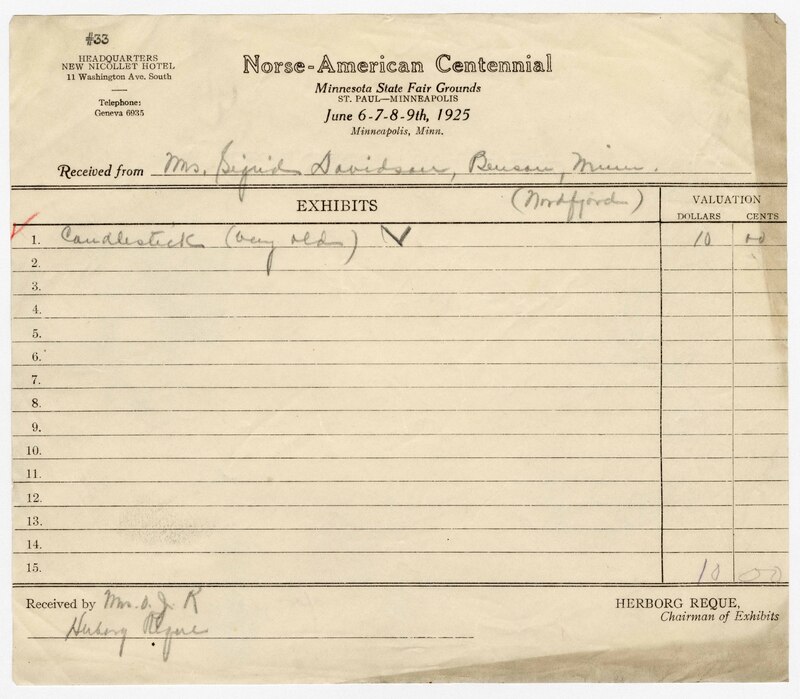 #33
HEADQUARTERS
NEW NICOLLET HOTEL
11 Washington Ave. South
Telephone:
Geneva 6935
Norse-American Centennial
Minnesota State Fair Grounds
ST. PAUL—MINNEAPOLIS
June 6-7-8-9th, 1925
Minneapolis, Minn.
Received from Mrs. Sigrid Davidson, Benson, Minn.
EXHIBITS (Nordfjord) VALUATION
DOLLARS CENTS
1. Candlestick (very old) ✓ 10 00
2.
3.
4.
5.
6.
7.
8.
9.
10.
11.
12.
13.
14.
15. 10 00
Received by Mrs. O. J. R
Herborg Reque
HERBORG REQUE,
Chairman of Exhibits